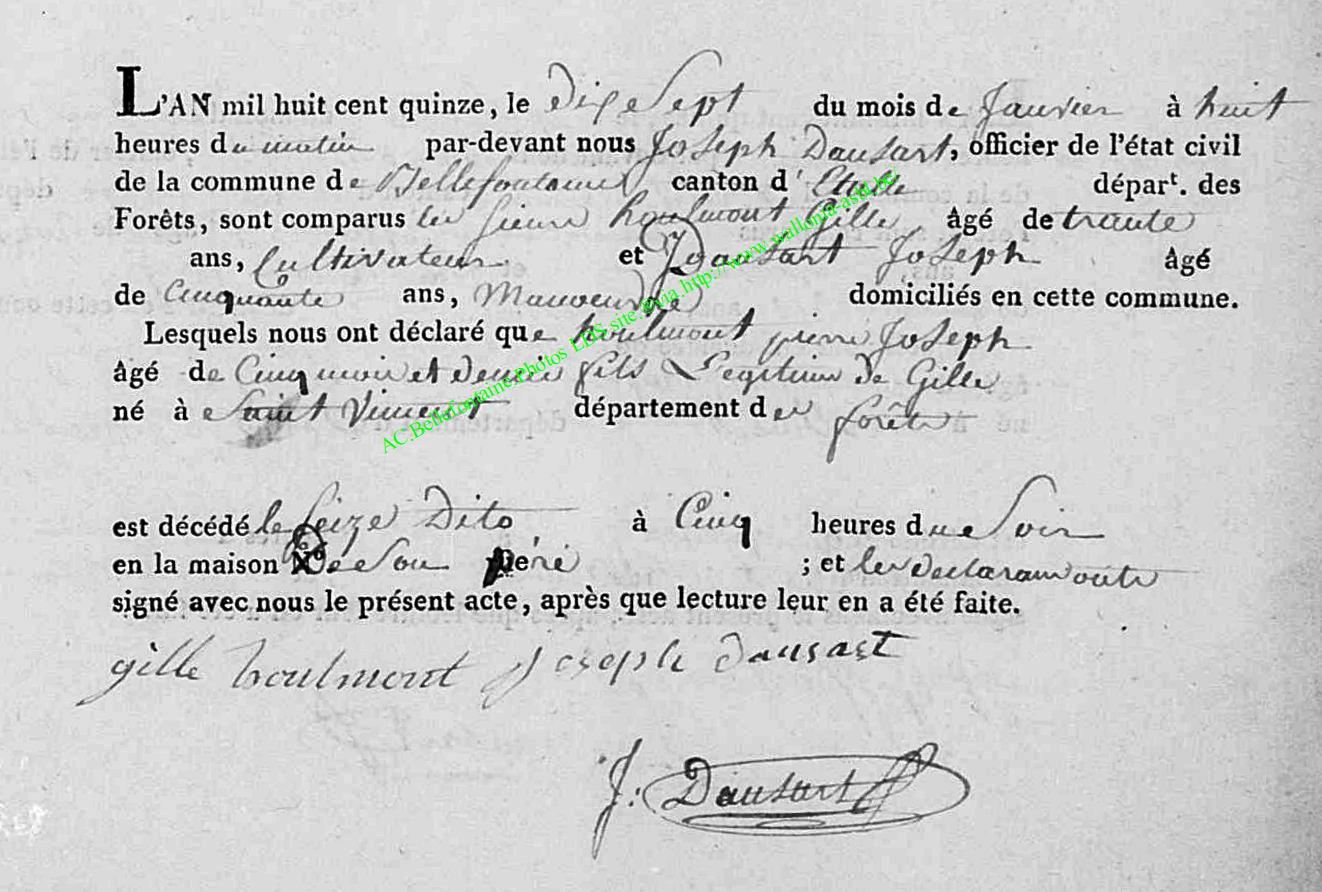 L'AN mil huit cent quinze, le dixe Sept du mois de Janvier à huit
heures du matin par-devant nous Joseph Dausart, officier de l'état civil
de la commune de Bellefontaine canton d'Etalle départ. des
Forêts, sont comparus les sieurs houlmont Gille âgé de trante
ans, Cultivateur et Dausart Joseph âgé
de Cinquante ans, Manoeuvre domiciliés en cette commune.
Lesquels nous ont déclaré que houlmont pierre Joseph
âgé de Cinq mois et demie fils Legitime de Gille
né à Saint Vincent département des forêts
est décédé le Seize Dito à Cinq heures du Soir
en la maison de Son père ; et les declarans onts
signé avec nous le présent acte, après que lecture leur en a été faite.
gille houlmont Joseph dausart
J: Dausart
AC.Bellefontaine.Photos LDS site:& via http://www.wallonia-asbl.be